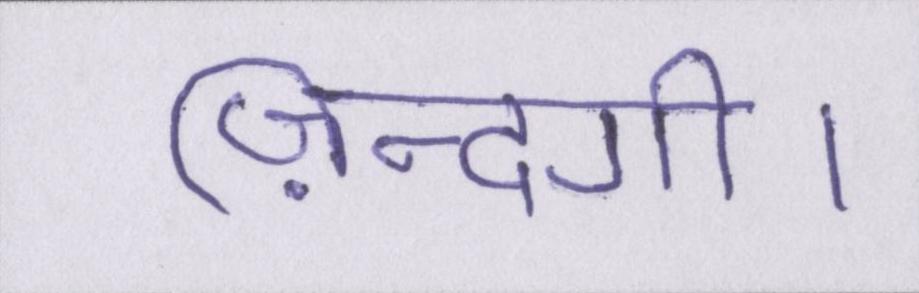 ज़िन्दगी।